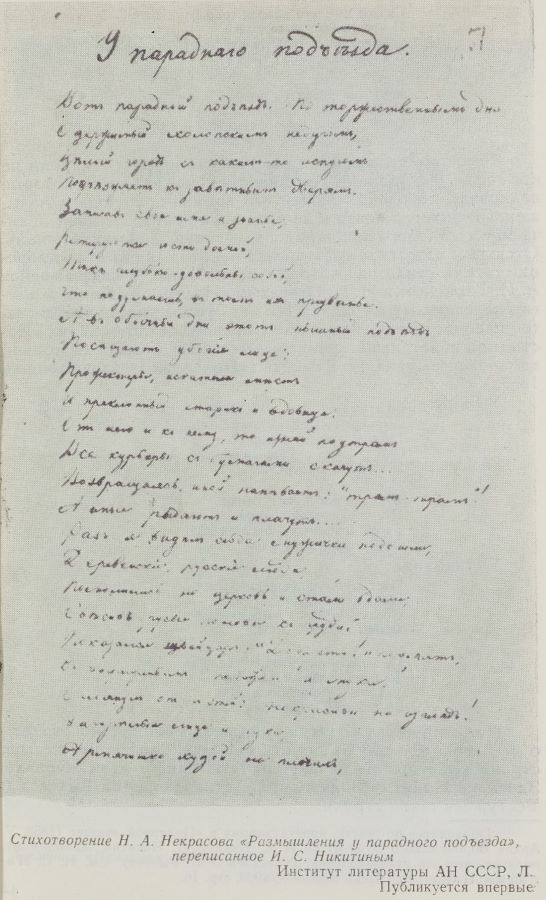 У параднаго подъѣзда.
Вотъ парадный подъѣздъ. По торжественнымъ дня
Одержимый холопскимъ недугомъ,
Цѣлый городъ съ какимъ-то испугомъ
Подъѣзжаетъ къ завѣтнымъ дверямъ.
Записавъ свое имя и званье,
Разъѣзжаются гости домой,
Такъ глубоко довольны собой,
Что подумаешь, въ томъ ихъ призванье.
А въ обычные дни этотъ пышный подъѣздъ
Посѣщаютъ убогіе лица:
Прожектеры, искатели мѣстъ
И преклонный старикъ и вдовица.
Отъ него и къ нему, то и знай по утрамъ
Все курьеры съ бумагами скачутъ...
Возвращаясь, иной напѣваетъ: "трамъ-трамъ"!
А иные рыдаютъ и плачутъ....
Разъ я видѣлъ сюда мужички подошли,
Деревенскіе, русскіе люди
Помолились на церковь и стали вдали
Свѣсивъ русыя головы къ груди;
Показался швейцаръ. "Допусти!" говорятъ,
Съ выраженьемъ надежды и муки.
загорѣлые лица и руки
Армячишко худой на плечахъ,
Стихотворение Н. А. Некрасова «Размышления у парадного подъезда»,
переписанное И. С. Никитиным
Институт литературы АН СССР, Л.
Публикуется впервые